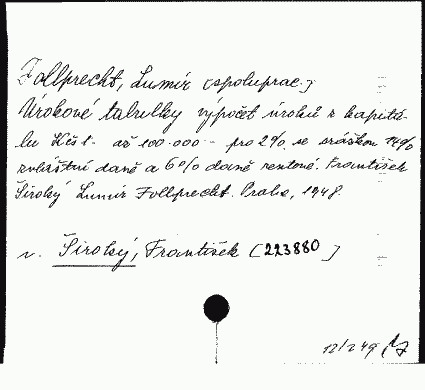 Follprecht, Lumír (spoluprac.)
Úrokové tabulky výpočet úroků z kapitá-
lu Kčs 1.- až 100.000.- pro 2% se srážkou 14%
zvláštní daně a 6% daně rentové. František
Široký Lumír Follprecht. Praha, 1948.
v. Široký, František [223880]
12/249